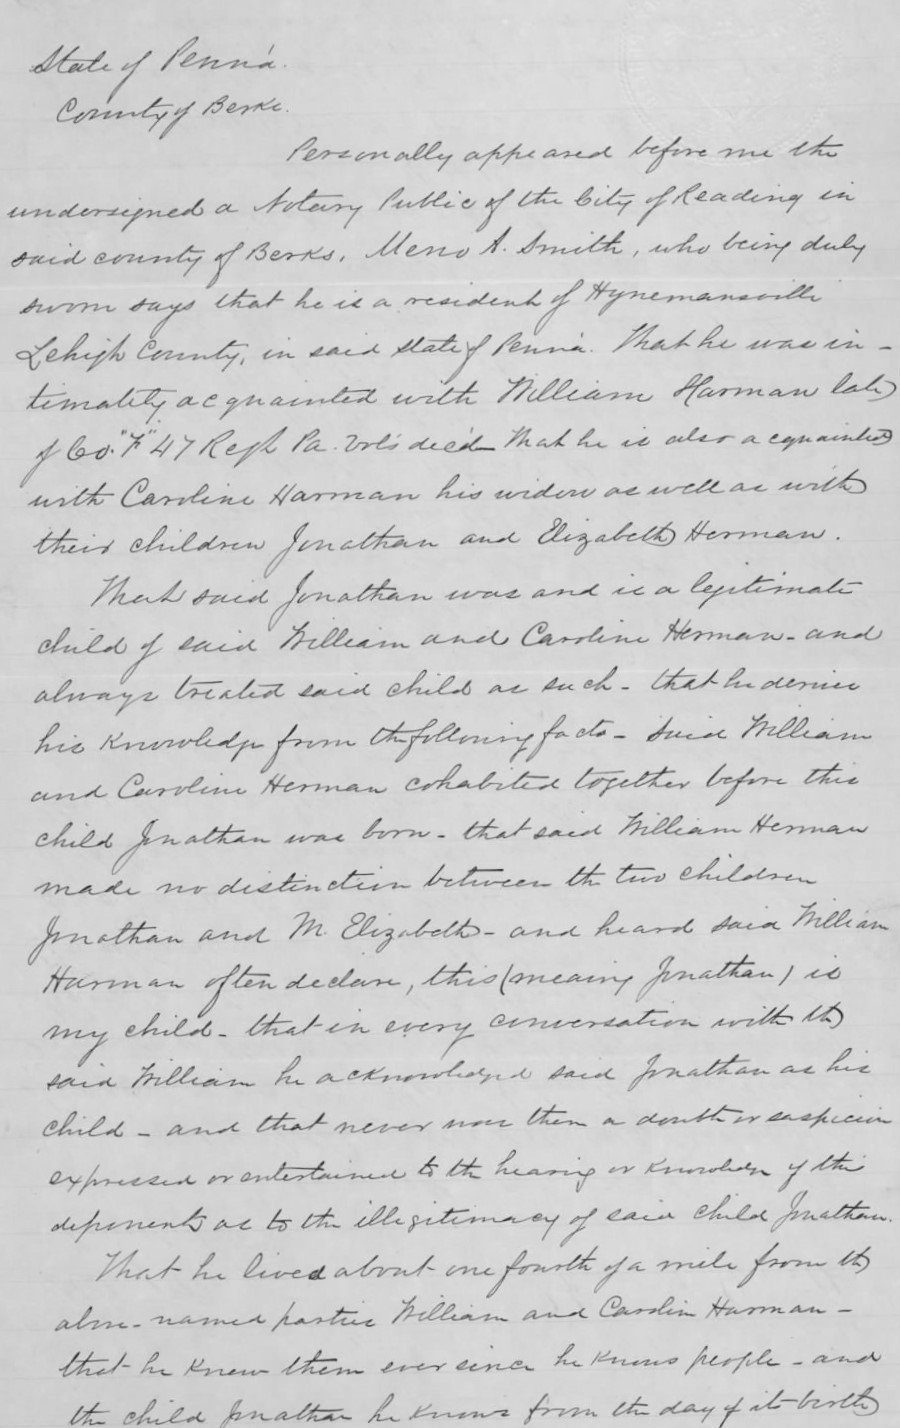 State of Penn'a.
County of Berks.
Personally appeared before me the
undersigned a Notary Public of the City of Reading in
said county of Berks, Meno A. Smith, who being duly
sworn says that he is a resident of Hynemansville
Lehigh County, in said State of Penn'a. That he was in-
timately acquainted with William Harman late
of Co. "F" 47 Regt Pa. Vol's dec'd That he is also acquainted
with Caroline Harman his widow as well as with
their children Jonathan and Elizabeth Herman.
That said Jonathan was and is a legitimate
child of said William and Caroline Herman - and
always treated said child as such - that he derives
his knowledge from the following facts - Said William
and Caroline Herman cohabited together before this
child Jonathan was born - that said William Herman
made no distinction between the two children
Jonathan and M. Elizabeth - and heard said William
Harman often declare, this (meaning Jonathan) is
my child - that in every conversation with the
said William he acknowledged said Jonathan as his
child - and that never was there a doubt or suspicion
expressed or entertained to the hearing or knowledge of this
deponent as to the illegitimacy of said child Jonathan.
That he lived about one fourth of a mile from the
above-named parties William and Carolin Harman -
that he knew them ever since he knows people - and
the child Jonathan he knows from the day of its birth